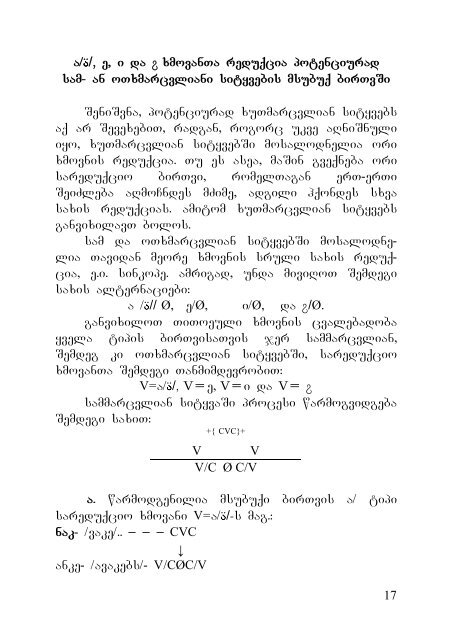 ა/ä/, ე, ი და ჷ ხმოვანთა რედუქცია პოტენციურად
სამ- ან ოთხმარცვლიანი სიტყვების მსუბუქ ბირთვში
შენიშვნა, პოტენციურად ხუთმარცვლიან სიტყვებს
აქ არ შევეხებით, რადგან, როგორც უკვე აღნიშნული
იყო, ხუთმარცვლიან სიტყვებში მოსალოდნელია ორი
ხმოვნის რედუქცია. თუ ეს ასეა, მაშინ გვექნება ორი
სარედუქციო ბირთვი, რომელთაგან ერთ-ერთი
შეიძლება აღმოჩნდეს მძიმე, ადგილი ჰქონდეს სხვა
სახის რედუქციას. ამიტომ ხუთმარცვლიან სიტყვებს
განვიხილავთ ბოლოს.
სამ და ოთხმარცვლიან სიტყვებში მოსალოდნე-
ლია თავიდან მეორე ხმოვნის სრული სახის რედუქ-
ცია, ე.ი. სინკოპე. ამრიგად, უნდა მივიღოთ შემდეგი
სახის ალტერნაციები:
ა /ä// Ø, ე/Ø, ი/Ø, და ჷ/Ø.
განვიხილოთ თითოეული ხმოვნის ცვალებადობა
ყველა ტიპის ბირთვისათვის ჯერ სამმარცვლიან,
შემდეგ კი ოთხმარცვლიან სიტყვებში, სარედუქციო
ხმოვანთა შემდეგი თანმიმდევრობით:
V=ა/ä/, V=ე, V=ი და V= ჷ
სამმარცვლიან სიტყვაში პროცესი წარმოგვიდგება
შემდეგი სახით:
+{ CVC}+
V V
V/C Ø C/V
ა. წარმოდგენილია მსუბუქი ბირთვის ა/ ტიპი
სარედუქციო ხმოვანი V=ა/ä/-ს მაგ.:
ნაკ- /ვაკე/.. – – – CVC
↓
ანკე- /ავაკებს/- V/CØC/V
17